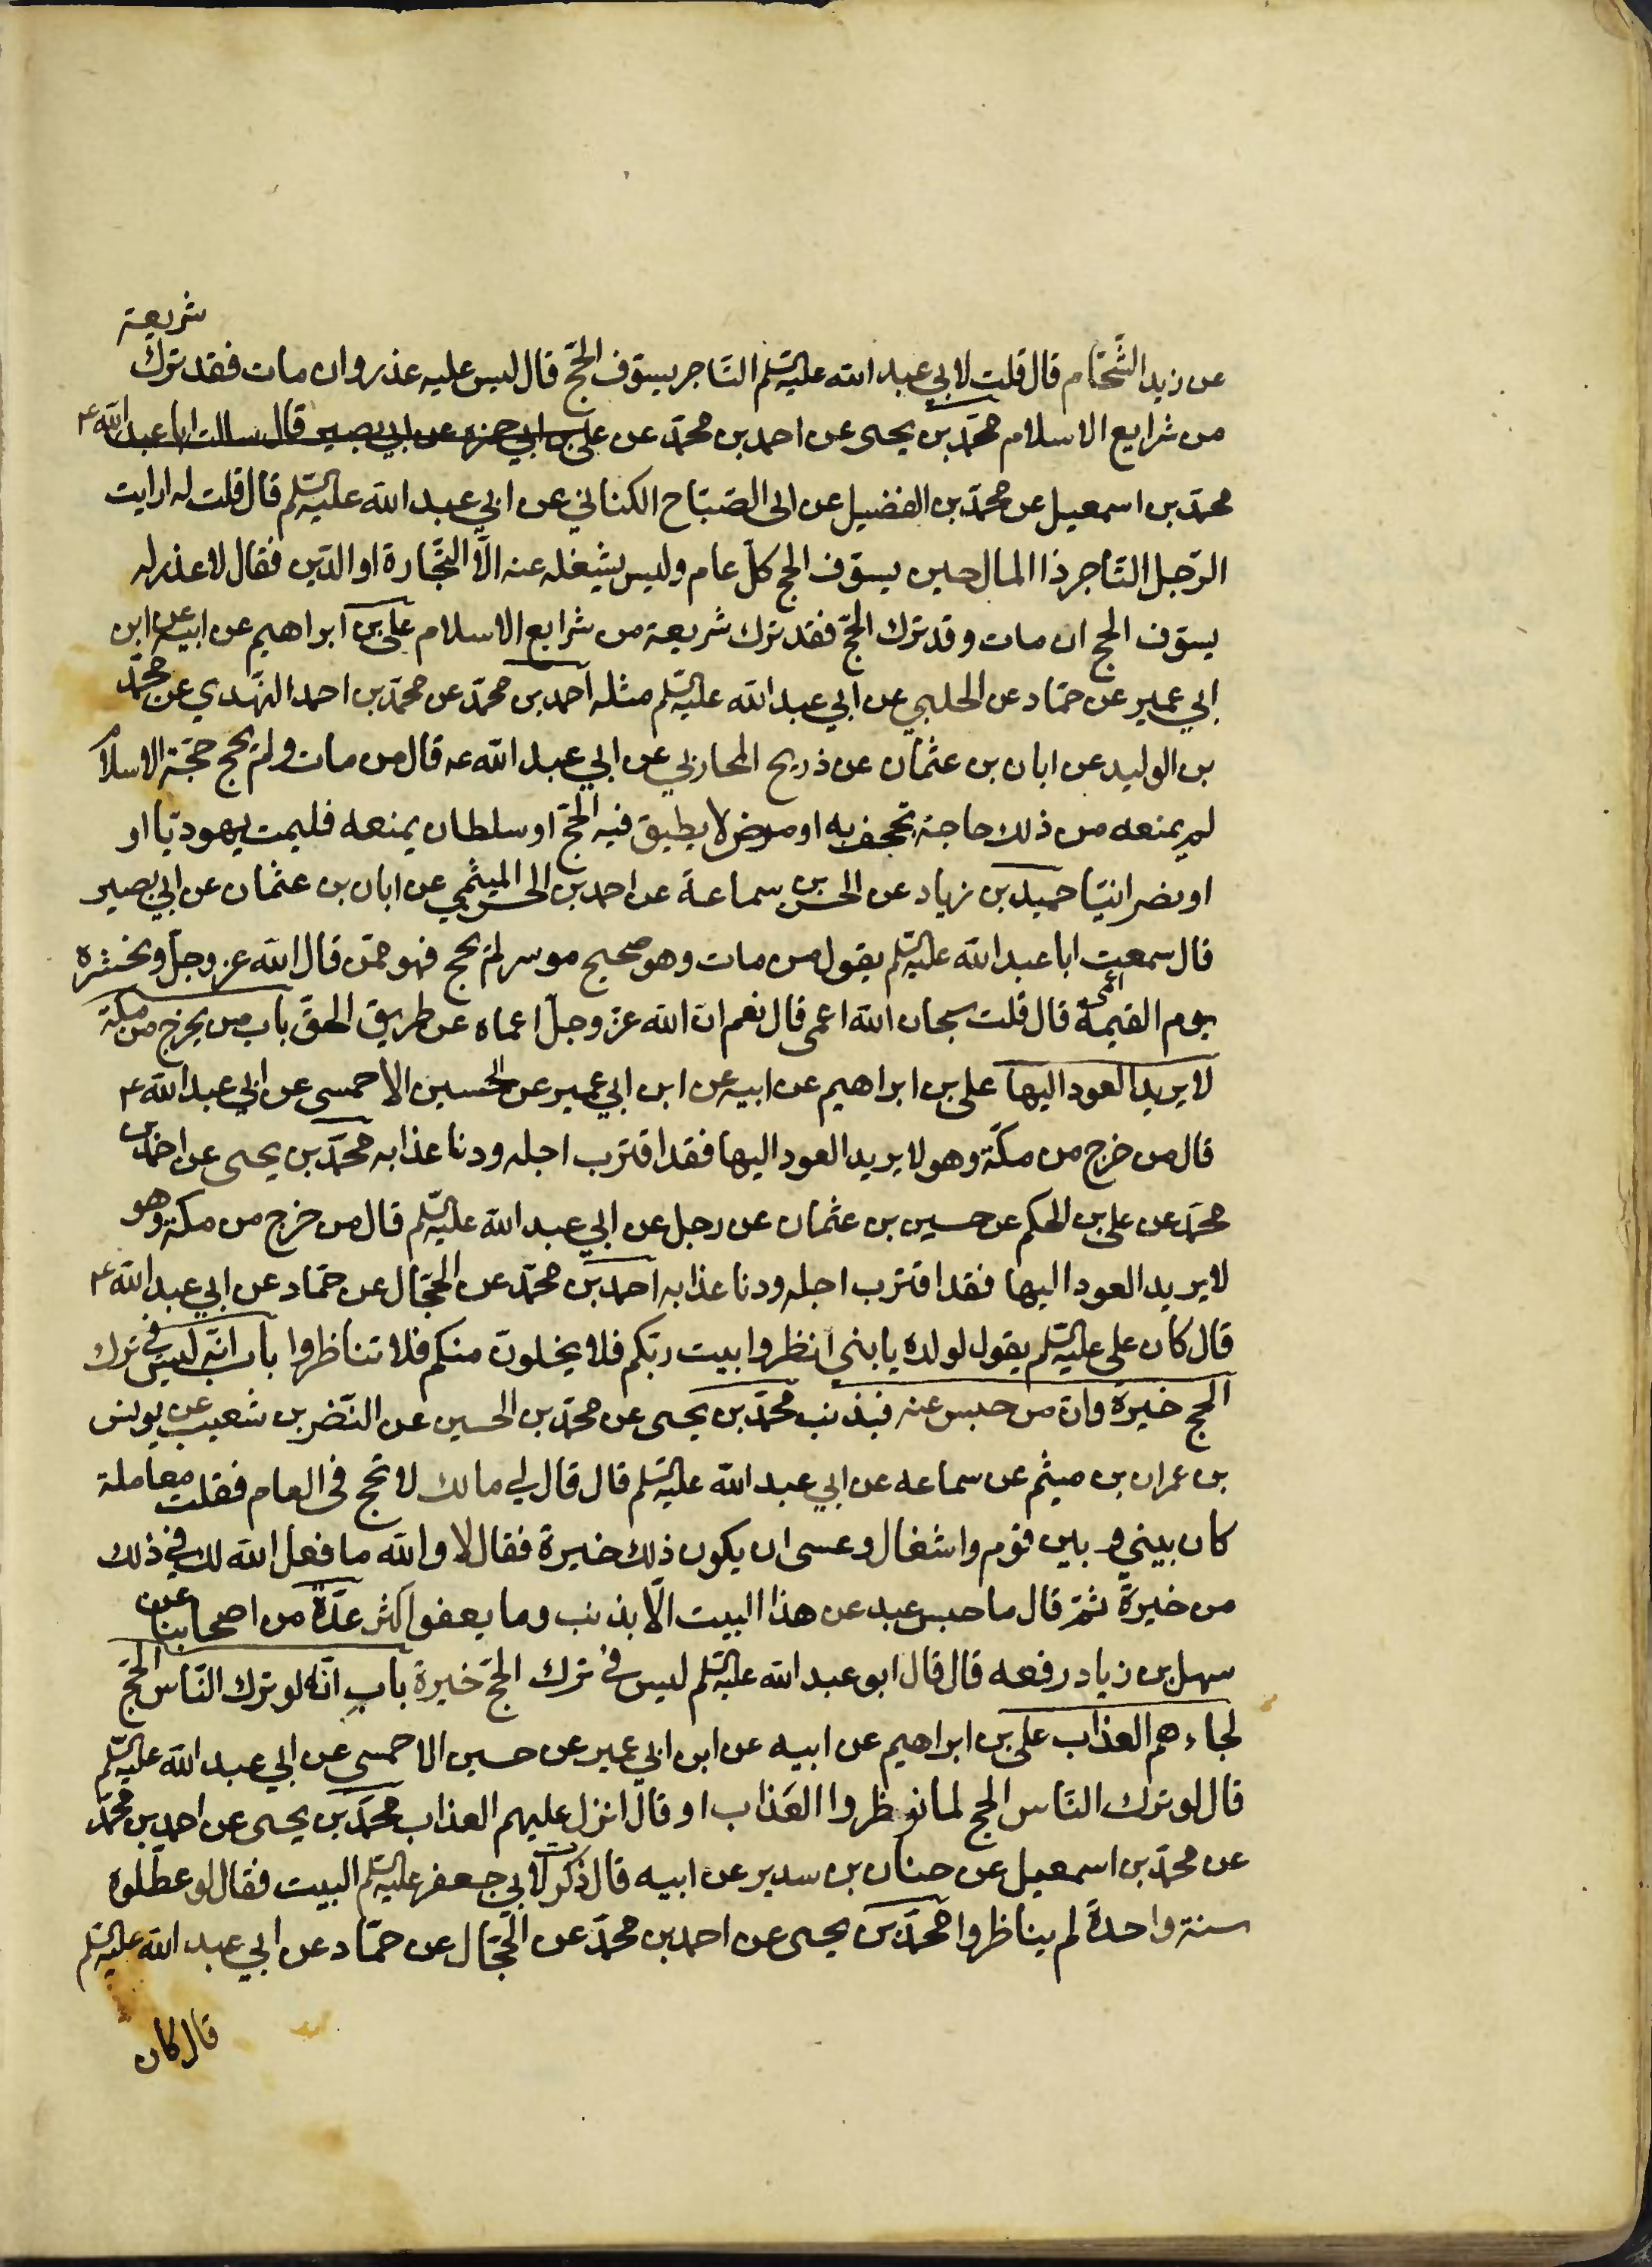 عن زيد الشَّحّام قال قلت لابي عبد الله عليه السّلم التّاجر يسوّف الحجّ قال ليس عليه عذر وان مات فقد ترك شريعة
من شرايع الاسلام محمّد بن يحيى عن احمد بن محمّد عن علي بن ابي حمزه عن ابي بصير قال سالت ابا عبد الله ع
محمّد بن اسمعيل عن محمّد بن الفضيل عن ابي الصّبّاح الكناني عن ابي عبد الله عليه السّلم قال قلت له ارايت
الرّجل التّاجر ذا المال حين يسوّف الحج كلّ عام وليس يشغله عنه الّا التّجارة او الدّين فقال لا عذر له
يسوّف الحج ان مات وقد ترك الحجّ فقد ترك شريعة من شرايع الاسلام علي بن ابراهيم عن ابيه عن ابن
ابي عمير عن حمّاد عن الحلبي عن ابي عبد الله عليه السّلم مثله احمد بن محمّد عن محمّد بن احمد النّهدي عن محمّد
بن الوليد عن ابان بن عثمان عن ذريح المحاربي عن ابي عبد الله عه قال من مات ولم يحج حجّة الاسلام
لم يمنعه من ذلك حاجة تجحف به او مرض لا يطيق فيه الحجّ او سلطان يمنعه فليمت يهوديّا او
او نصرانيّا حميد بن زياد عن الحسن بن سماعة عن احمد بن الحسن الميثمي عن ابان بن عثمان عن ابي بصير
قال سمعت ابا عبد الله عليه السّلم يقول من مات وهو صحيح موسر لم يحج فهو ممّن قال الله عز وجلّ ونحشره
يوم القيمة اعمى قال قلت سبحان الله اعمى قال نعم انّ الله عزّ وجلّ اعماه عن طريق الحقّ باب من يخرج من مكّة
لا يريد العود اليها علي بن ابراهيم عن ابيه عن ابن ابي عمير عن الحسين الاحمسي عن ابي عبد الله ع
قال من خرج من مكّة وهو لا يريد العود اليها فقد اقترب اجله ودنا عذابه محمّد بن يحيى عن احمد بن
محمّد عن علي بن الحكم عن حسين بن عثمان عن رجل عن ابي عبد الله عليه السّلم قال من خرج من مكة وهو
لا يريد العود اليها فقد اقترب اجله ودنا عذابه احمد بن محمّد عن الحجّال عن حمّاد عن ابي عبد الله ع
قال كان علي عليه السّلم يقول لولده يا بني انظروا بيت ربّكم فلا يخلونّ منكم فلا تناظروا باب انّه ليس في ترك
الحج خيرة وانّ من حبس عنه فبذنب محمّد بن يحيى عن محمّد بن الحسين عن النّضر بن شعيب عن يونس
بن عمران بن ميثم عن سماعه عن ابي عبد الله عليه السّلم قال قال لي مالك لا تحج في العام فقلت معاملة
كان بيني و بين قوم واشغال وعسى ان يكون ذلك خيرة فقال لا والله ما فعل الله لك في ذلك
من خيرة ثمّ قال ما حبس عبد عن هذا البيت الّا بذنب وما يعفو اكثر عدّة من اصحابنا عن
سهل بن زياد رفعه قال قال ابو عبد الله عليه السّلم ليس في ترك الحجّ خيرة باب انّه لو ترك النّاس الحجّ
لجاءهم العذاب علي بن ابراهيم عن ابيه عن ابن ابي عمير عن حسين الاحمسي عن ابي عبد الله عليه السّلم
قال لو ترك النّاس الحج لما نوظروا العَذاب او قال انزل عليهم العذاب محمّد بن يحيى عن احمد بن محمّد
عن محمّد بن اسمعيل عن حنان بن سدير عن ابيه قال ذكرت لابي جعفر عليه السّلم البيت فقال لو عطّلوه
سنة واحدة لم يناظروا محمّد بن يحيى عن احمد بن محمّد عن الحجّال عن حمّاد عن ابي عبد الله عليه السّلم
قال كان